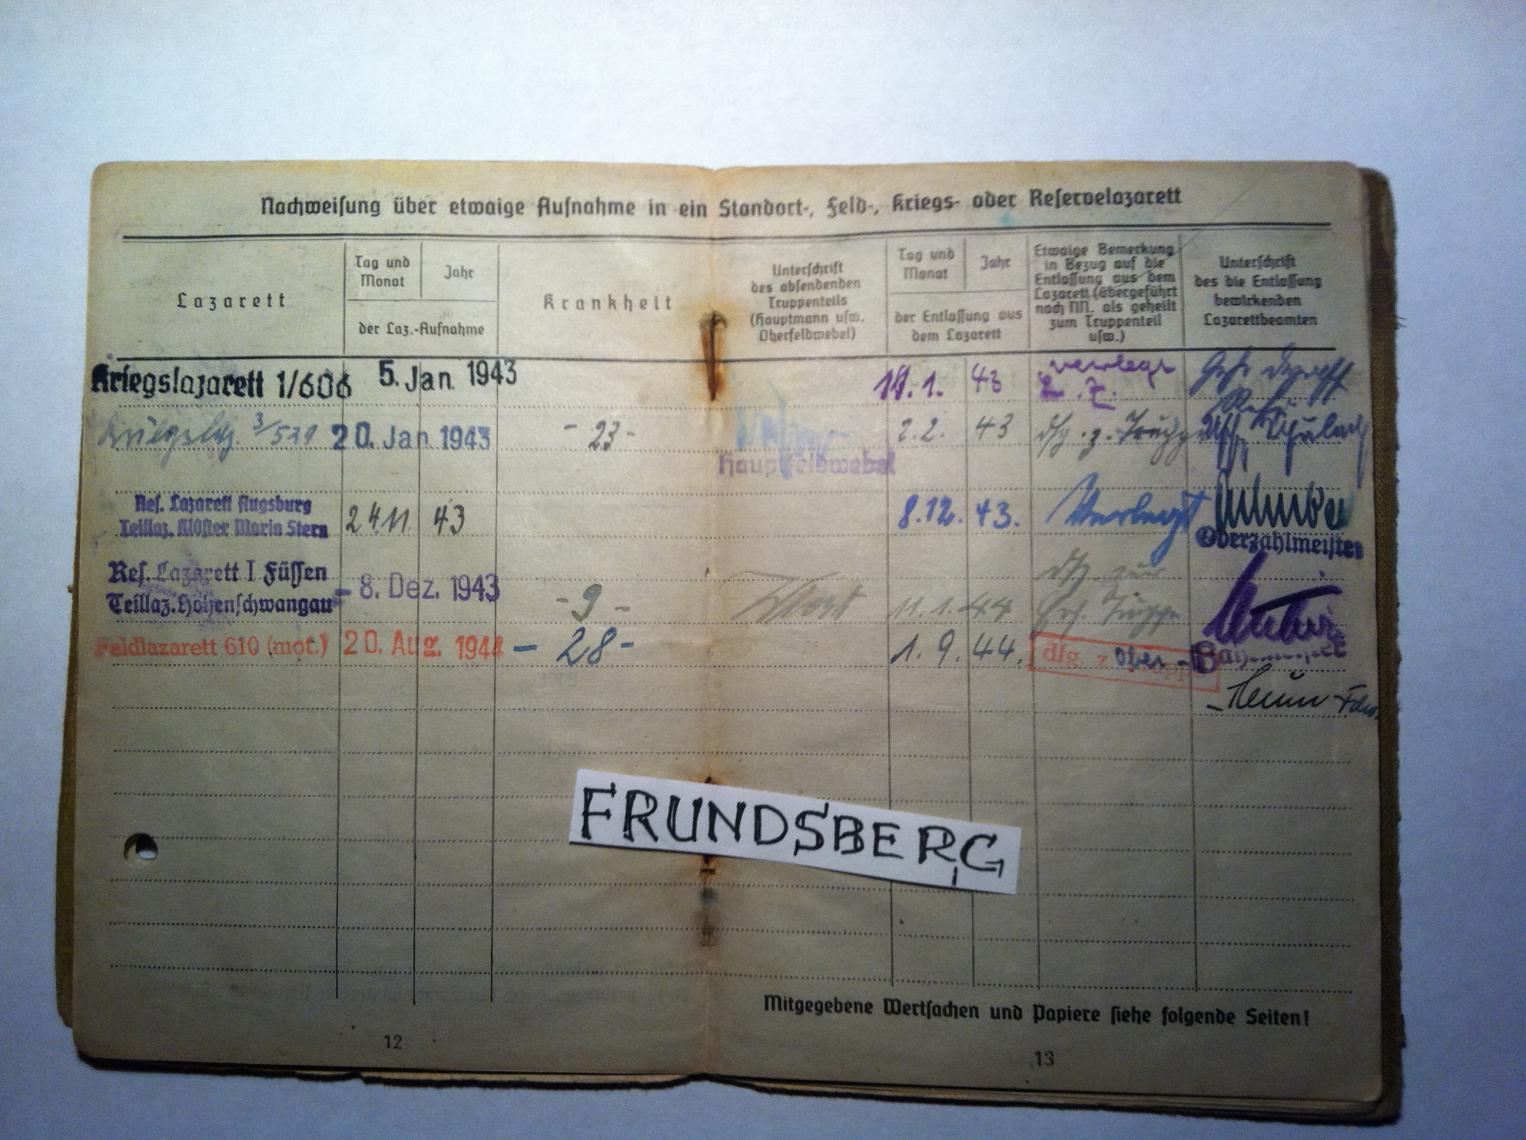 Nachweisung über etwaige Aufnahme in ein Standort-, Feld-, Kriegs- oder Reservelazarett
Lazarett
Tag und Monat
Jahr
der Laz.-Aufnahme
Krankheit
Unterschrift
des absendenden
Truppenteils
(Hauptmann usw.
Oberfeldwebel)
Tag und Monat
Jahr
der Entlassung aus
dem Lazarett
Etwaige Bemerkung
in Bezug auf die
Entlassung aus dem
Lazarett (übergeführt
nach NN. als geheilt
zum Truppenteil
usw.)
Unterschrift
des die Entlassung
bewirkenden
Lazarettbeamten
Kriegslazarett 1/606 5. Jan. 1943 43 verlegt
20. Jan. 1943 - 23 - 2.2. 43
Hauptfeldwebel
Res. Lazarett Augsburg
Teillaz. Klöster Maria Stern 24.11 43 8.12. 43. Verlegt
Oberzahlmeister
Res. Lazarett I Füssen
Teillaz. Hohenschwangau - 8. Dez. 1943 - 9 - 11.1.44
Feldlazarett 610 (mot.) 20. Aug. 1944 - 28 - 1. 9. 44. dfg. z.
FRUNDSBERG
Mitgegebene Wertsachen und Papiere siehe folgende Seiten!
12
13